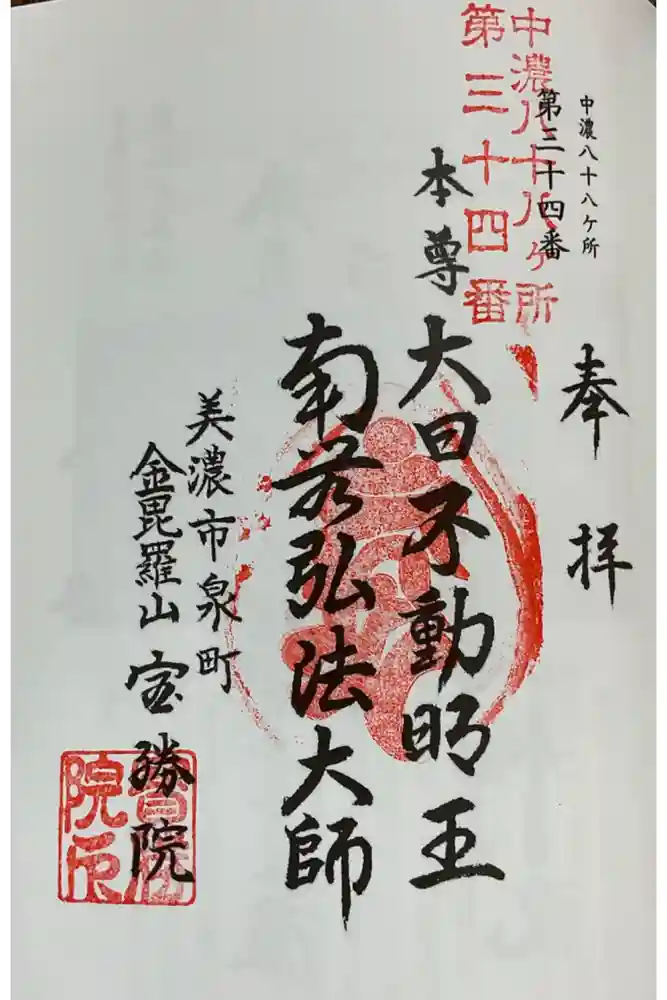 中濃八十八ヶ所
第三十四番
中濃八十八ケ所
第三十四番
奉拝
本尊
大日不動明王
南無弘法大師
美濃市泉町
金毘羅山
宝勝院
寳勝
院印